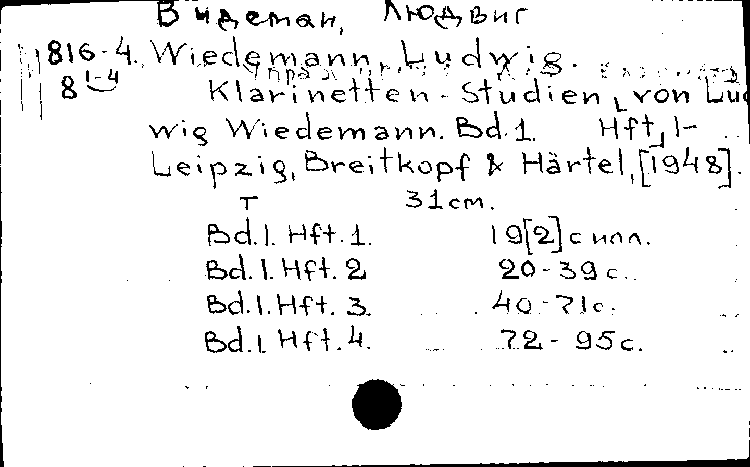 Видеман, Людвиг
816-4. Wiedemann, Ludwig.
8 1-4 Klarinetten-Studien, von Lud
wig Wiedemann. Bd.1. Hft, 1-
Leipzig, Breitkopf & Härtel, [1948].
т 31cm.
Bd.1. Hft.1. 19[2] с илл.
Bd.1. Hft. 2 20-39 с.
Bd.1. Hft. 3. 40-71с.
Bd.1 Hft.4. 72-95с.